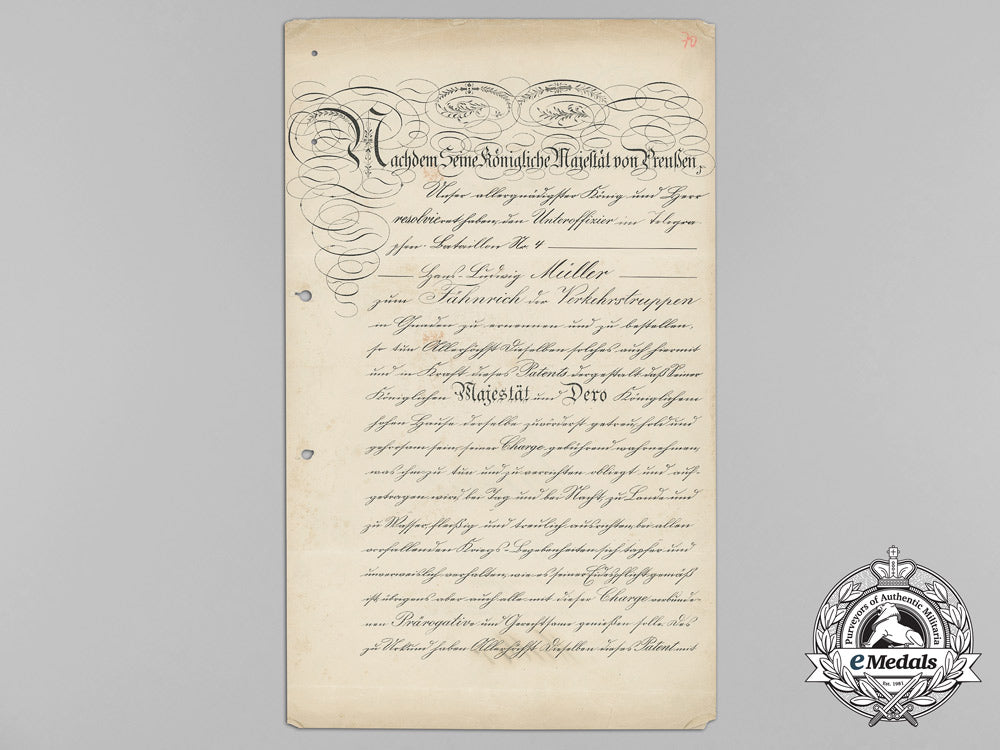 70
Nachdem Seine Königliche Majestät von Preußen,
Unser allergnädigster König und Herr
resolvieret haben, den Unteroffizier im Telegra-
phen-Bataillon Nr. 4
Hans-Ludwig Müller
zum Fähnrich der Verkehrstruppen
in Gnaden zu ernennen und zu bestellen,
so tun Allerhöchst Dieselben solches auch hiermit
und in Kraft dieses Patents dergestalt, daß Seiner
Königlichen Majestät und Dero Königlichem
Hohen Hause derselbe zuvörderst getreu, hold und
gehorsam sein, seiner Charge gebührend wahrnehmen,
was ihm zu tun und zu verrichten obliegt und auf-
getragen wird, bei Tag und bei Nacht, zu Lande und
zu Wasser fleißig und treulich ausrichten, bei allen
vorfallenden Kriegs-Begebenheiten sich tapfer und
unverweislich verhalten, wie es seiner Eidespflicht gemäß
ist, übrigens aber auch alle mit dieser Charge verbunde-
nen Prärogative und Gerechtsame genießen solle. Des
zu Urkund haben Allerhöchst Dieselben dieses Patent mit
Purveyors of Authentic Militaria
eMedals
Est. 1981